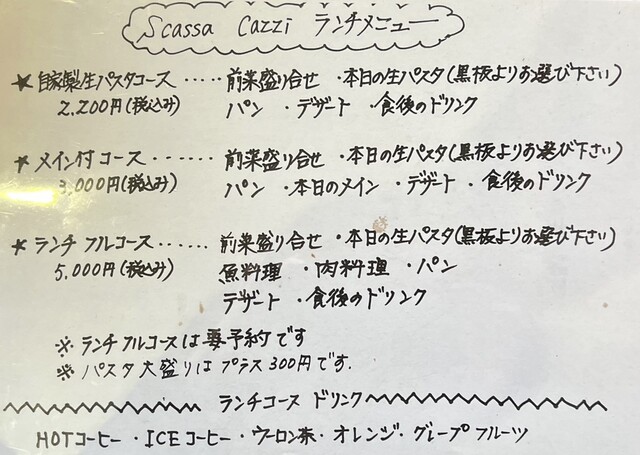 Scassa Cazzi ランチメニュー
★ 自家製生パスタコース ····· 前菜盛り合せ ・本日の生パスタ(黒板よりお選び下さい)
2,200円(税込み) パン ・デザート ・食後のドリンク
★ メイン付コース ······ 前菜盛り合せ ・本日の生パスタ(黒板よりお選び下さい)
3,000円(税込み) パン ・本日のメイン ・デザート ・食後のドリンク
★ ランチフルコース ······ 前菜盛り合せ ・本日の生パスタ(黒板よりお選び下さい)
5,000円(税込み) 魚料理 ・肉料理 ・パン
デザート ・食後のドリンク
※ ランチフルコースは要予約です
※ パスタ大盛りはプラス300円です.
ランチコース ドリンク
HOTコーヒー ・ICEコーヒー ・ウーロン茶・オレンジ・グレープフルーツ